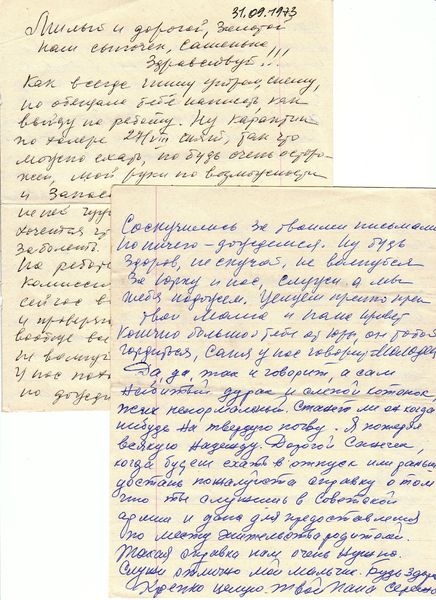 31.09.1973
Милый и дорогой, золотой
наш сыночек, Сашенька
Здравствуй!!!
Как всегда пишу утром, спешу,
но обещала тебе написать как
выйду на работу. Ну карантин
по холере 27/VIII снят, так что
можно ехать, но будь очень осторо-
жен, мой руки по возможности
и
не пей
хочется
заболеть.
На работе
комиссия
сейчас в
и проверя
вообще
не волнуй
У нас
но дождё
Соскучились за твоими письмами
но ничего - дождемся. Ну будь
здоров, не скучай, не волнуйся
за Юрку и нас, служи а мы
тебя подождем. Целуем крепко креп
твои Мама и папа привет
конечно большой тебе от Юры, он тобой
гордится, Саня у нас говорит - молодец
Да, да, так и говорит, а сам
набитый дурак и слепой котенок,
жених ненормальный. Станет ли он когда
нибудь на твердую почву. Я потерял
всякую надежду. Дорогой Санчик,
когда будеш ехать в отпуск или раньше
достань пожалуйста справку о том
что ты служишь в Советской
армии и дана для предоставления
по месту жительства родителей.
Такая справка нам очень нужна.
Служи отлично мой мальчик. Будь здоров
Крепко целую твой папа Сережа